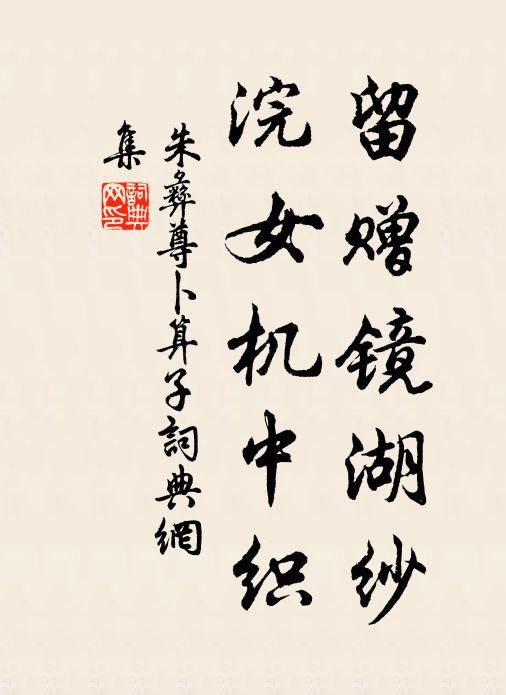 留赠镜湖纱
浣女机中织
朱彝尊卜算子詞典網
集
詞典
网印